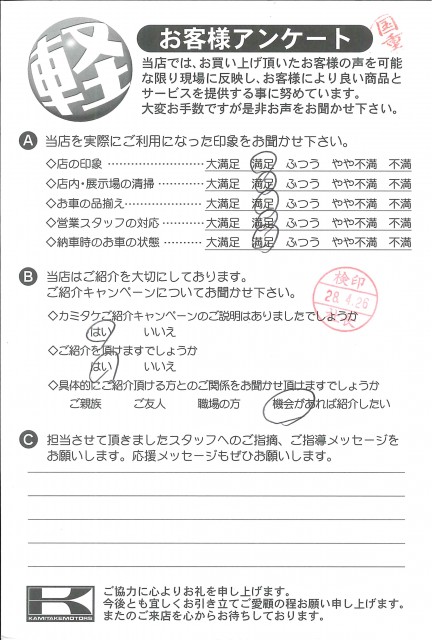 軽
お客様アンケート
国重
当店では、お買い上げ頂いたお客様の声を可能
な限り現場に反映し、お客様により良い商品と
サービスを提供する事に努めています。
大変お手数ですが是非お声をお聞かせ下さい。
A 当店を実際にご利用になった印象をお聞かせ下さい。
◇店の印象 ………………… 大満足 満足 ふつう やや不満 不満
◇店内・展示場の清掃 ………… 大満足 満足 ふつう やや不満 不満
◇お車の品揃え ……………… 大満足 満足 ふつう やや不満 不満
◇営業スタッフの対応 ………… 大満足 満足 ふつう やや不満 不満
◇納車時のお車の状態 ………… 大満足 満足 ふつう やや不満 不満
B 当店はご紹介を大切にしております。
ご紹介キャンペーンについてお聞かせ下さい。
検印
28.4.26
◇カミタケご紹介キャンペーンのご説明はありましたでしょうか
はい いいえ
◇ご紹介を頂けますでしょうか
はい いいえ
◇具体的にご紹介頂ける方とのご関係をお聞かせ頂けますでしょうか
ご親族 ご友人 職場の方 機会があれば紹介したい
C 担当させて頂きましたスタッフへのご指摘、ご指導メッセージを
お願いします。応援メッセージもぜひお願いします。
K
KAMITAKEMOTORS
ご協力に心よりお礼を申し上げます。
今後とも宜しくお引き立てご愛顧の程お願い申し上げます。
またのご来店を心からお待ちしております。